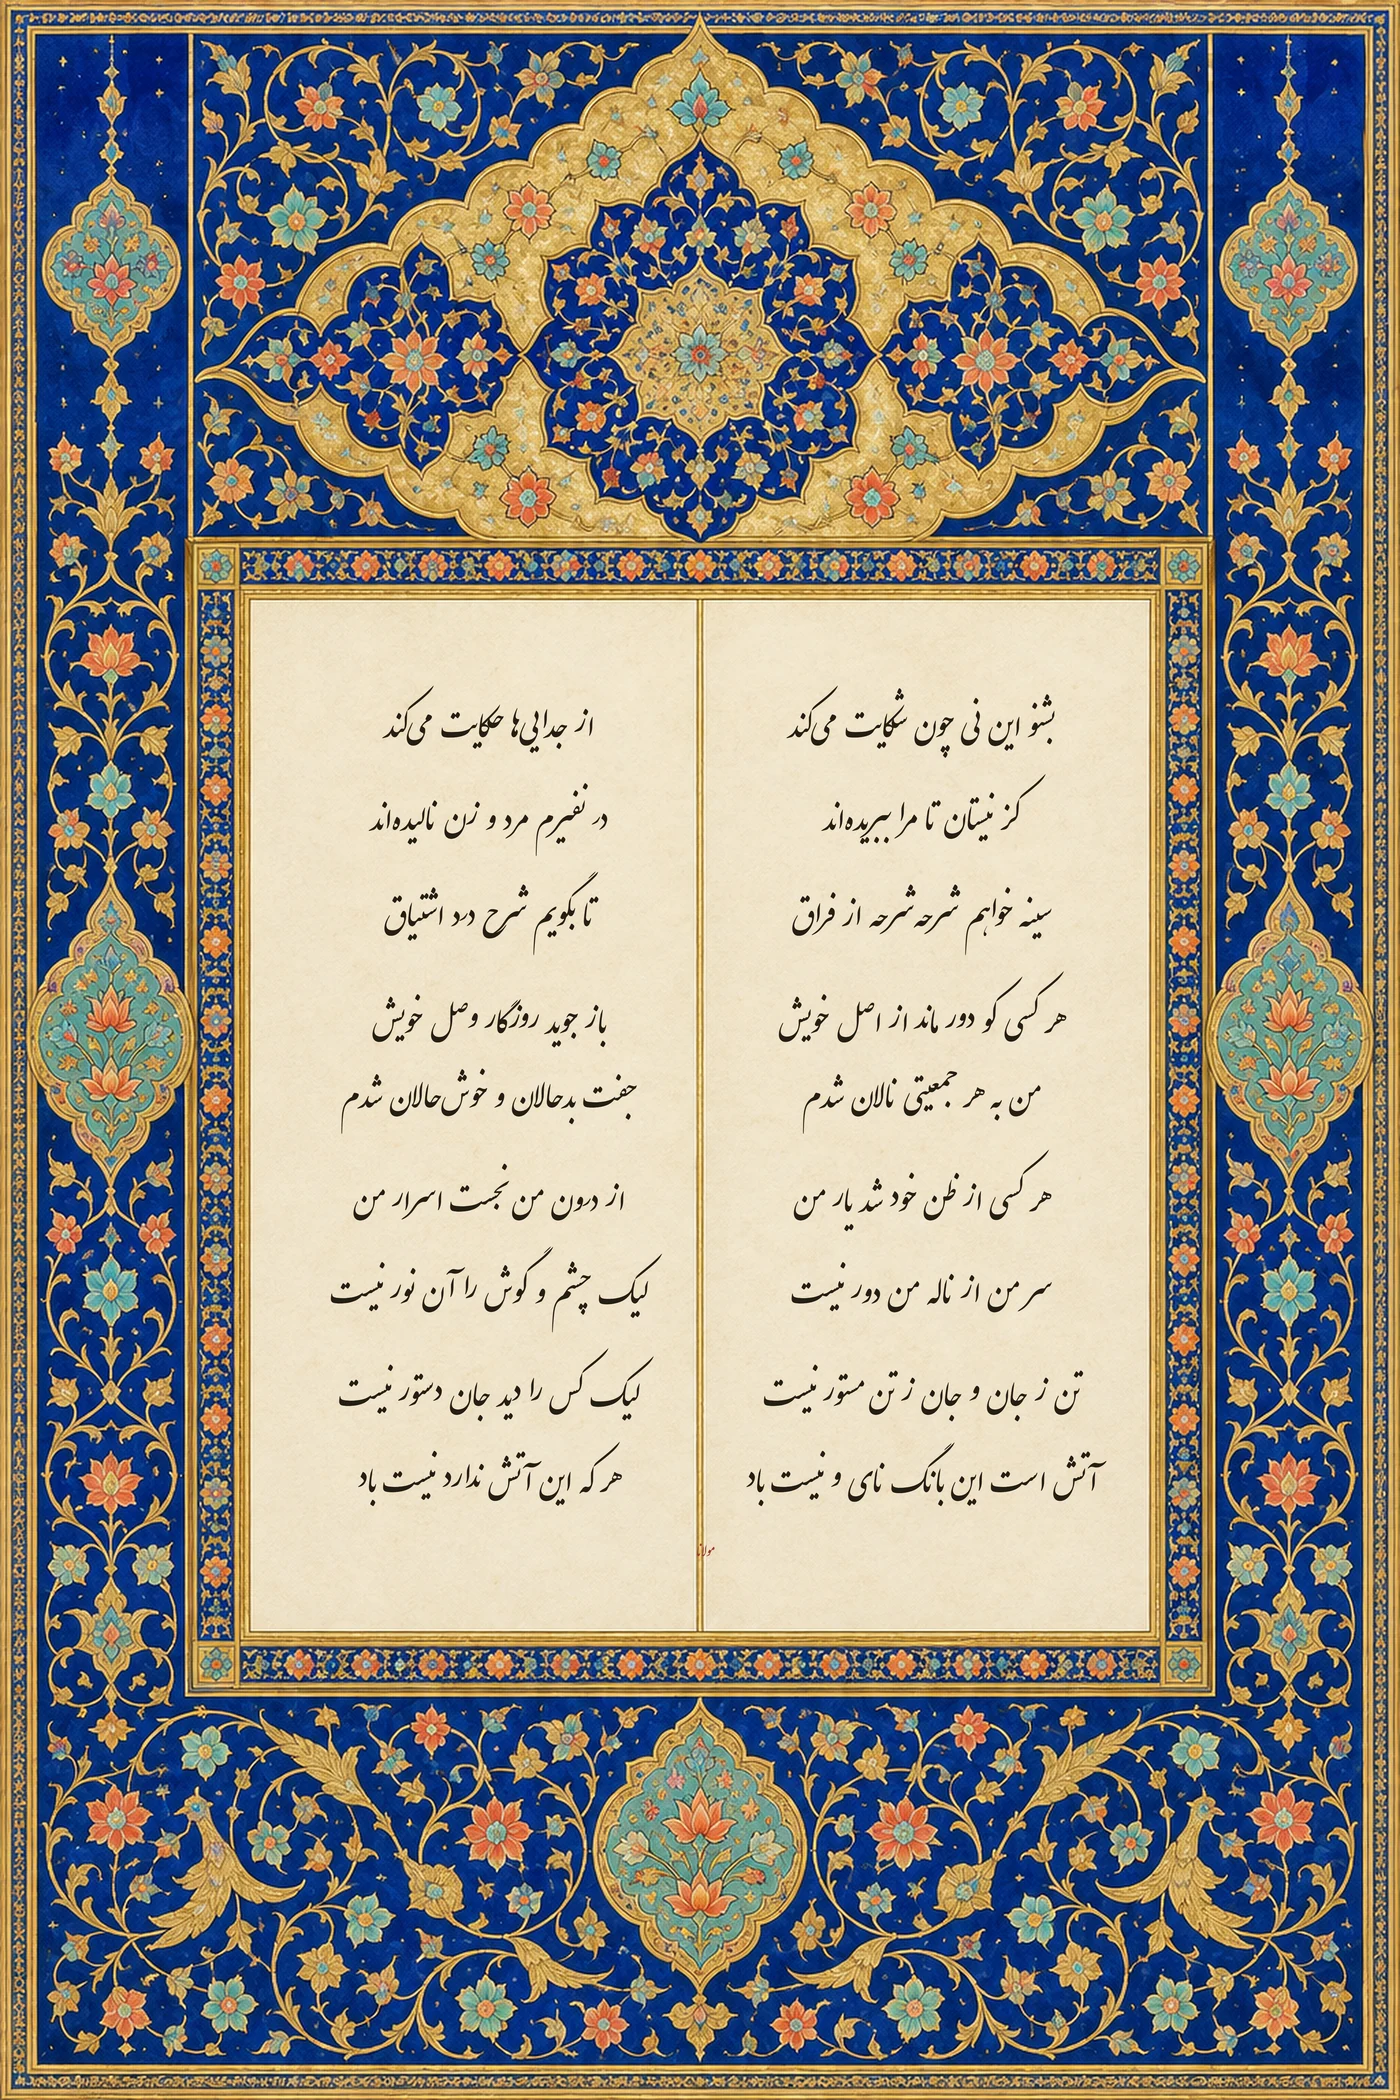 بشنو این نی چون شکایت می‌کند
از جدایی‌ها حکایت می‌کند
کز نیستان تا مرا ببریده‌اند
در نفیرم مرد و زن نالیده‌اند
سینه خواهم شرحه شرحه از فراق
تا بگویم شرح درد اشتیاق
هر کسی کو دور ماند از اصل خویش
باز جوید روزگار وصل خویش
من به هر جمعیتی نالان شدم
جفت بدحالان و خوش‌حالان شدم
هر کسی از ظن خود شد یار من
از درون من نجست اسرار من
سر من از ناله من دور نیست
لیک چشم و گوش را آن نور نیست
تن ز جان و جان ز تن مستور نیست
لیک کس را دید جان دستور نیست
آتش است این بانگ نای و نیست باد
هر که این آتش ندارد نیست باد
مولانا